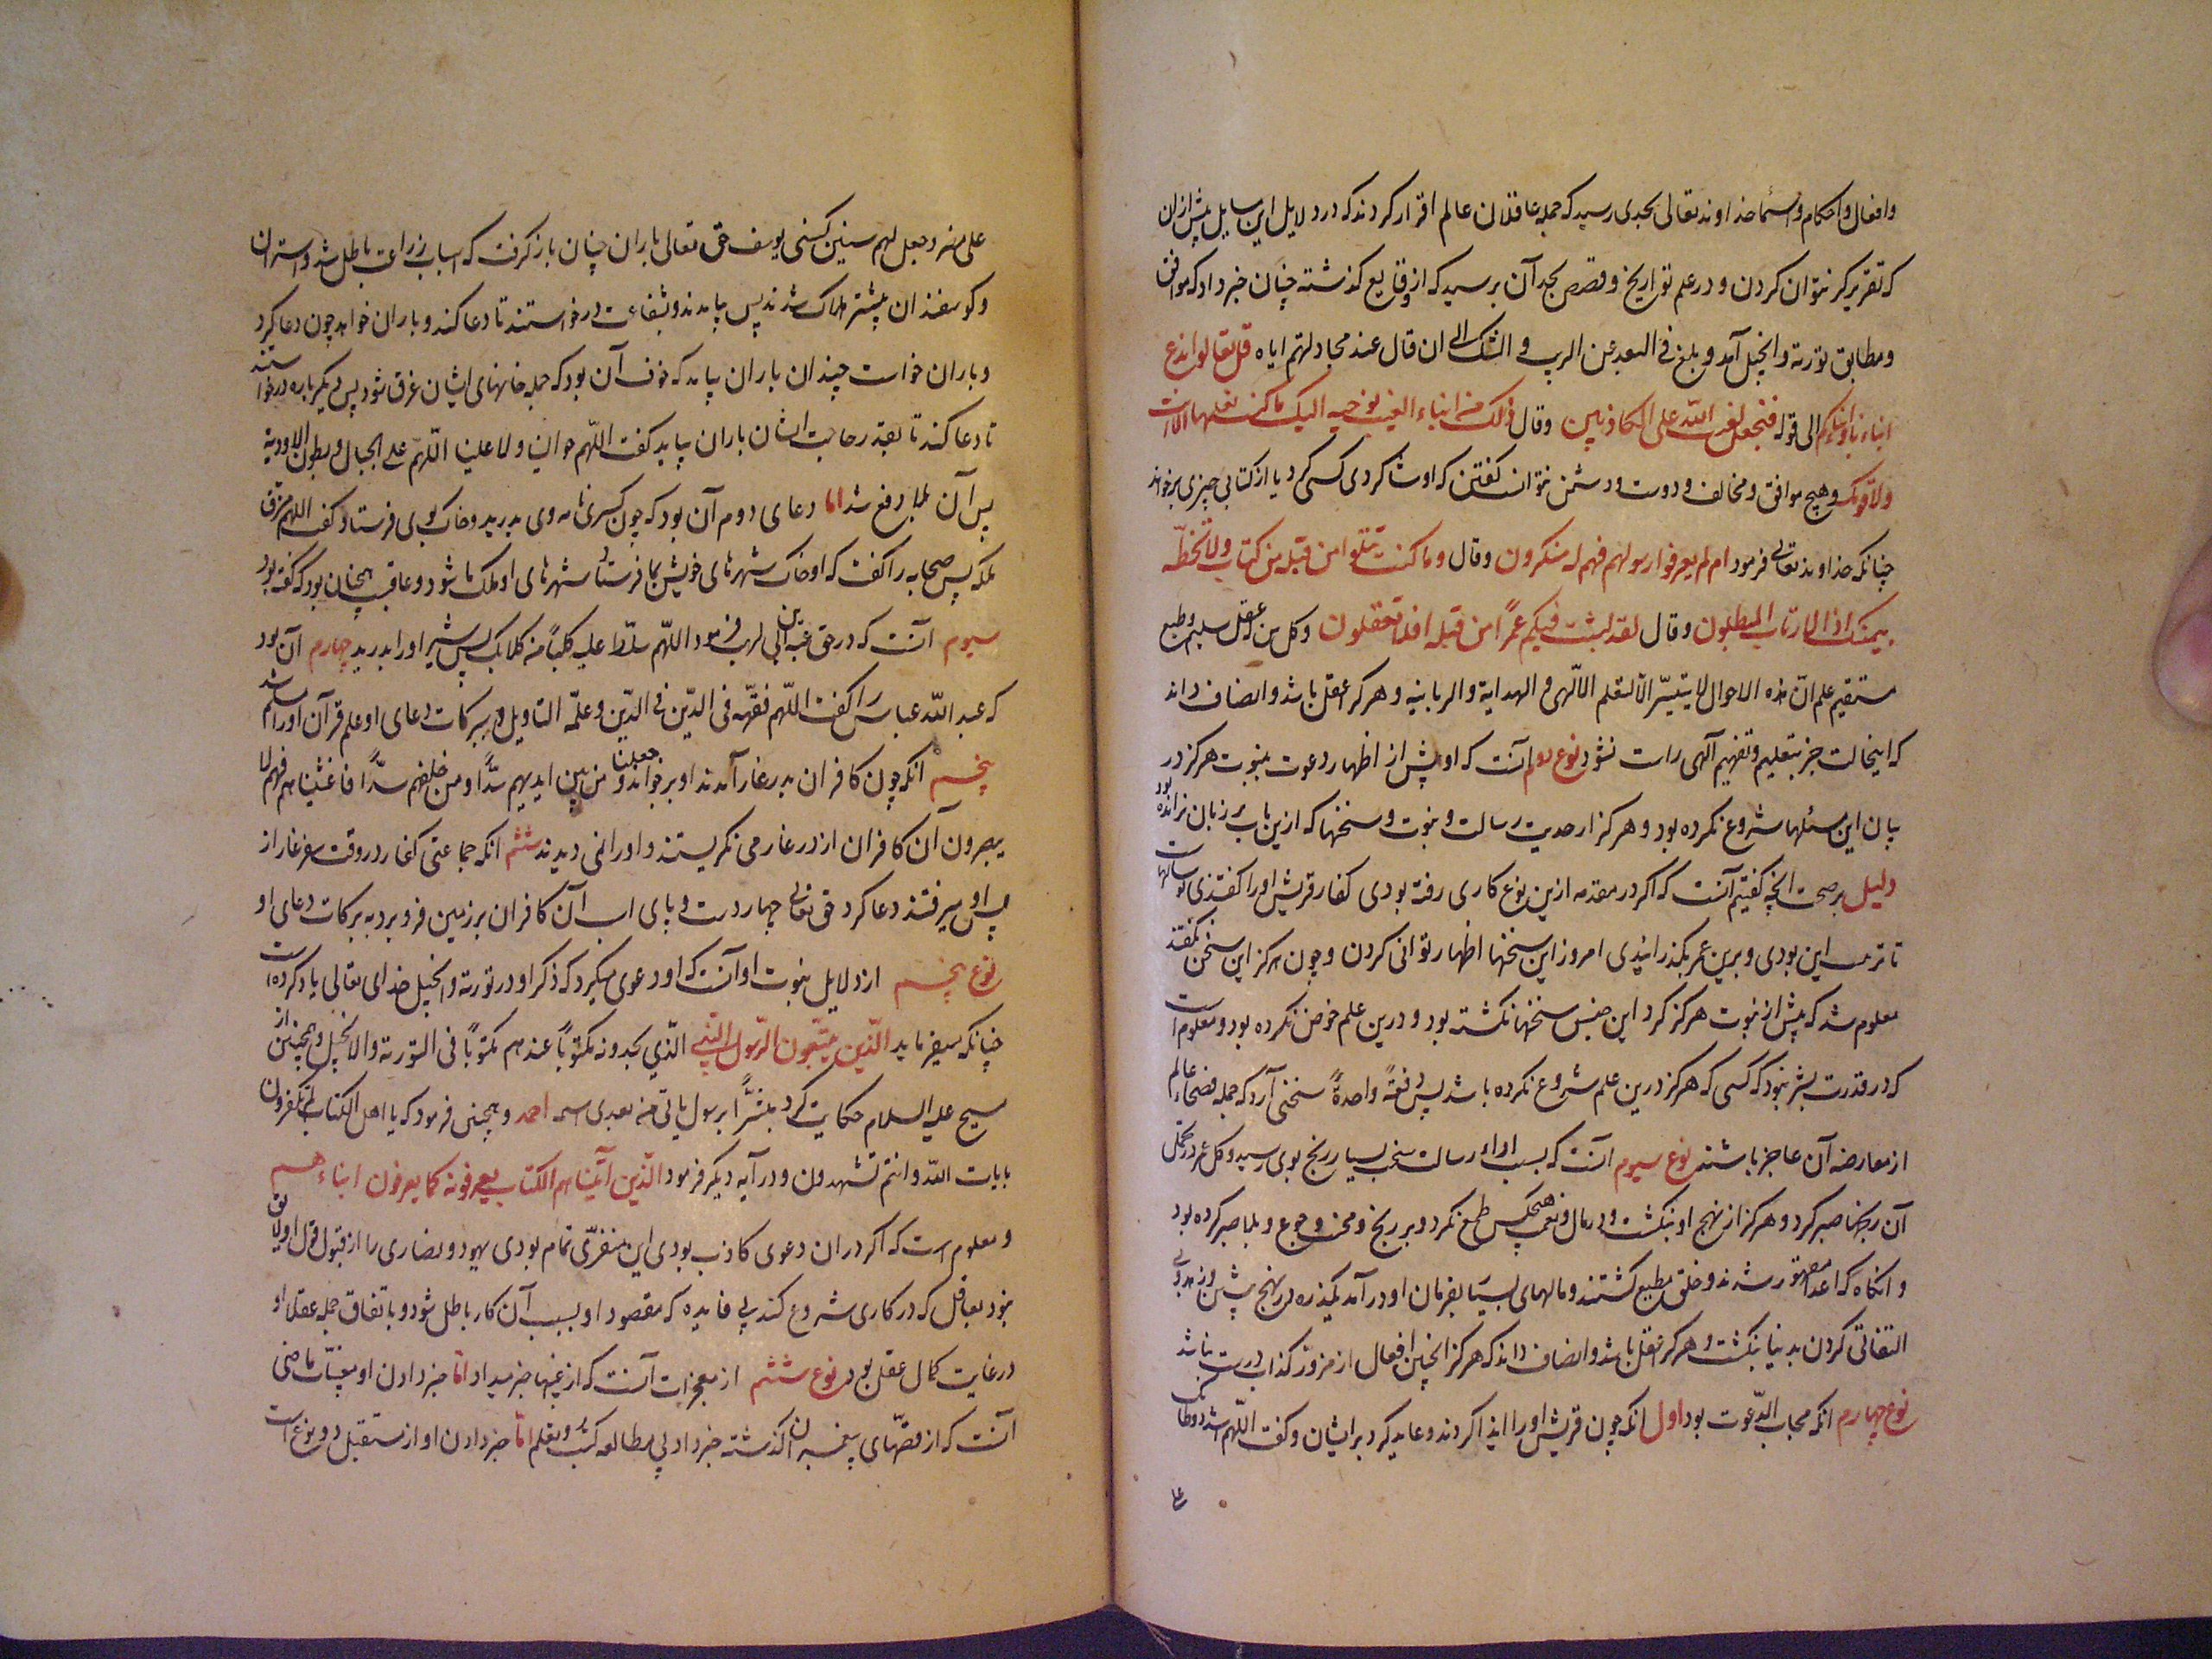 وافعال و احکام و اسماء خداوند تعالی بجدی رسید که جمله عاقلان عالم اقرار کردند که در دلایل این مسایل بیش ازان
که تقریر کرد نتوان کردن و در علم تواریخ و قصص بجد آن برسید که از وقایع کذشته چنان خبر داد که موافق
و مطابق توریة و انجیل آمد و بلغ فی البعد عن الریب و الشک الی ان قال عند مجادلتهم ایاه قل تعالوا ندع
ابناءنا و ابناءکم الی قوله فنجعل لعنت الله علی الکاذبین وقال ذلک من انباء الغیب نوحیه الیک ما کنت تعلمها انت
ولا قومک وهیچ موافق و مخالف و دوست و دشمن نتوانست کفتن که او شاکردی کسی کرد یا از کتابی چیزی برخواند
چنانکه خداوند تعالی فرمود ام لم یعرفوا رسولهم فهم له منکرون وقال وما کنت تتلوا من قبله من کتاب ولا تخطه
بیمینک اذا لارتاب المبطلون وقال لقد لبثت فیکم عمرًا من قبله افلا تعقلون وکل من له عقل سلیم و طبع
مستقیم علم ان هذه الاحوال لا یتیسر الا لتعلم الالهی و الهدایة و الربانیه و هر کرا عقل باشد و انصاف داند
که اینحالت جز بتعلیم و تفهیم آلهی راست نشود نوع دوم آنست که او پیش از اظهار دعوت بنبوت هرکز در
بیان این مسئلها شروع نکرده بود و هرکز از حدیث رسالت و نبوت و سخنها که ازین باب بر زبان نرانده بود
دلیل بر صحت آنچه کفتیم آنست که اکر در مقدمه ازین نوع کاری رفته بودی کفار قریش او را کفتندی تو سالها
تا ترتیب این بودی و برین عمر بکذرانیدی امروز این سخنها اظهار توانی کردن و چون هرکز این سخن نکفتند
معلوم شد که پیش از نبوت هرکز کرد این جنس سخنها نکشته بود و درین علم خوض نکرده بود و معلوم است
که در قدرت بشر نبود که کسی که هرکز درین علم شروع نکرده باشد پس دفعةً واحدةً سخنی آرد که جمله فصحاء عالم
از معارضه آن عاجز باشند نوع سیوم آنست که بسبب اداء رسالت بسیار رنج بوی رسید و کل عمر در تحمل
آن رنجها صبر کرد و هرکز از نهج او نکشت و در مال و نعمت هیچکس طمع نکرد و بر رنج و محن و جوع و بلا صبر کرده بود
و آنکاه که اعدا مقهور شدند و خلق مطیع کشتند و مالهای بسیار بفرمان او درآمد بر نهج پیشین و زهد وی
التفاتی کردن بدنیا نکشت و هر کرا عقل باشد و انصاف داند که هرکز اینچنین افعال از مزور کذاب درست نباشد
نوع چهارم آنکه مجاب الدعوت بود اول آنکه چون قریش او را ایذا کردند دعای بد کرد بر ایشان و کفت اللهم اشدد وطأتک
علی
علی مضر و جعل لهم سنین کسنی یوسف حق تعالی باران چنان باز کرفت که اسباب زراعت باطل شد و استران
و کوسفندان بیشتر هلاک شدند پس بیامدند و بشفاعت درخواستند تا دعا کند و باران خواهد چون دعا کرد
و باران خواست چندان باران بیامد که خوف آن بود که جمله خانهای ایشان غرق شود پس دیکر باره درخواستند
تا دعا کند تا بقدر حاجت ایشان باران بیاید کفت اللهم حوالینا ولا علینا اللهم علی الجبال و بطون الاودیة
پس آن بلا دفع شد اما دعای دوم آن بود که چون کسری نامه وی بدرید و خاک بوی فرستاد کفت اللهم مزق
ملکه پس صحابه را کفت که او خاک شهرهای خویش بما فرستاد شهرهای او ملک ما شود و عاقبت همچنان بود که کفته بود
سیوم آنست که در حق عتبة بن ابی لهب فرمود اللهم سلّط علیه کلبًا من کلابک پس شیر او را بدرید چهارم آن بود
که عبد الله عباس را کفت اللهم فقّهه فی الدّین فی الدّین و علّمه التاویل و ببرکات دعای او علم قرآن او را مسلم شد
پنجم آنکه چون کافران بدر غار آمدند او برخواند و جعلنا من بین ایدیهم سدًّا و من خلفهم سدًّا فاغشیناهم فهم لا
یبصرون آن کافران از در غار می نکریستند و او را نمی دیدند ششم آنکه جماعتی کفار در وقت سفر غار از
پس او میرفتند دعا کرد حق تعالی چهار دست و پای اسب آن کافران بر زمین فرو برد به برکات دعای او
نوع پنجم از دلایل نبوت او آنست که او دعوی میکرد که ذکر او در توریة و انجیل خدای تعالی یاد کرده است
چنانکه میفرماید الّذین یتّبعون الرّسول النّبی الّذی یجدونه مکتوبًا عندهم مکتوبًا فی التوریة و الانجیل و همچنین از
مسیح علیه السلام حکایت کرد مبشّرًا برسول یاتی من بعدی اسمه احمد و همچنین فرمود که یا اهل الکتاب لم تکفرون
بایات الله و انتم تشهدون و در آیه دیکر فرمود الّذین آتیناهم الکتاب یعرفونه کما یعرفون ابناءهم
و معلوم است که اکر در ان دعوی کاذب بودی این منفّری تمام بودی یهود و نصاری را از قبول قول او و لایق
نبود بعاقل که در کاری شروع کند بی فایده که مقصود او بسبب آن کار باطل شود و باتفاق جمله عقلا او
در غایت کمال عقل بود نوع ششم از معجزات آنست که از غیبها خبر میداد امّا خبر دادن او بمغیّبات ماضی
آنست که از قصّهای پیغمبران کذشته خبر داد بی مطالعه کتب و تعلم امّا خبر دادن او از مستقبل دو نوع است